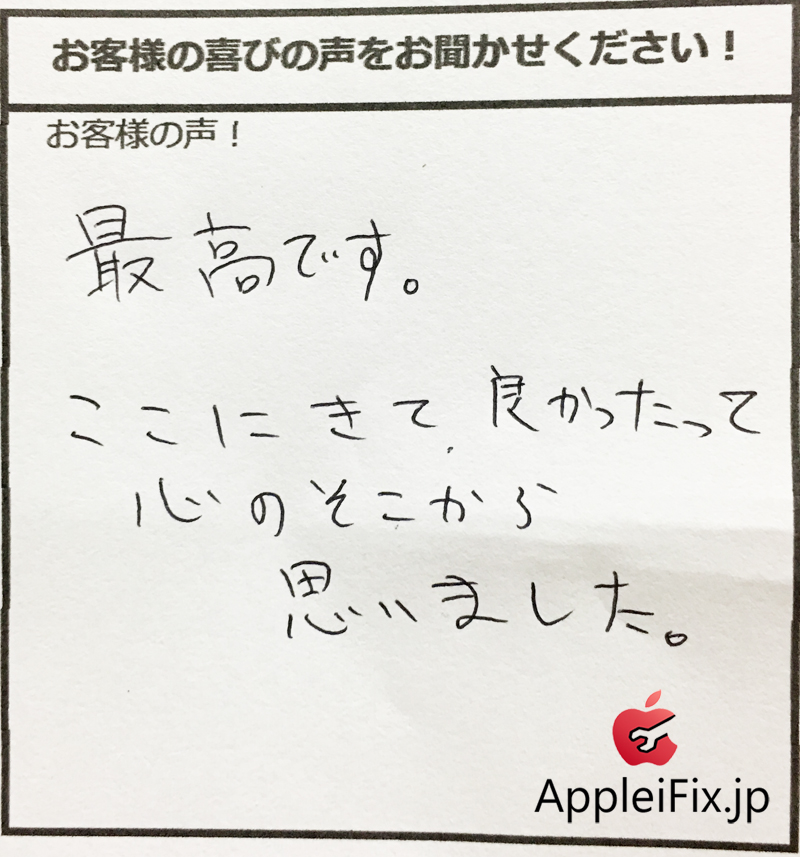 お客様の喜びの声をお聞かせください！
お客様の声！
最高です。
ここにきて、良かったって
心のそこから
思いました。
AppleiFix.jp